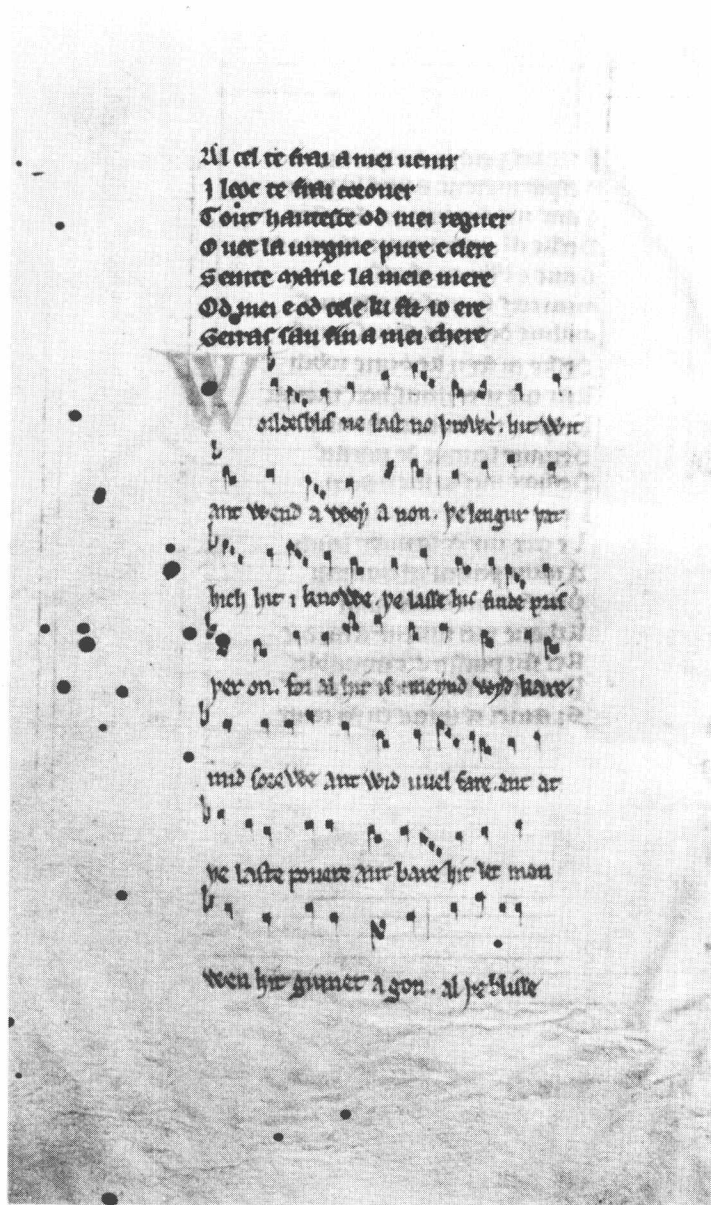 Al cel te frai a mei uenir
Iloec te frai coroner
Tout hauteste od mei regner
Ouec la uirgine pure e clere
Seinte marie la meie mere
Od mei e od cele ki fu to ere
Serras sau fin a mei chere
Worldes blis ne last no þrowe. hit wit
ant wend a wey a non. þe lengur þat
hich hit i knowe. þe lasse hic finde pris
þer on. for al hit is imeynd wyd kare.
mid sorewe ant wid uuel fare. ant at
þe laste pouere ant bare hit let mon
wen hit ginnet a gon. al þe blisse